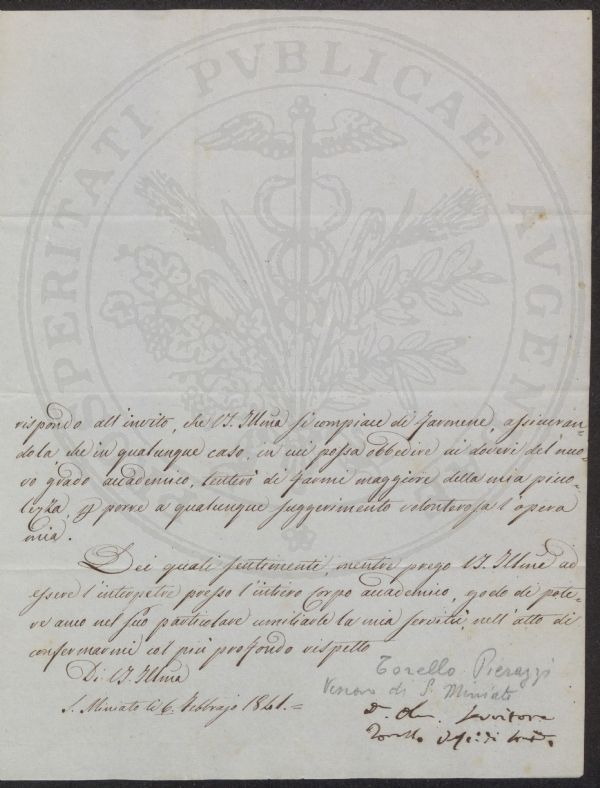 PROSPERITATI PVBLICAE AVGENDAE
rispondo all'invito, che V.S. Illma si compiace di farmene, assicuran-
dola che in qualunque caso, in cui possa obbedire ai doveri del nuo-
vo grado accademico, tenterò di farmi maggiore della mia picco-
lezza, porre a qualunque suggerimento volonterosa l'opera
mia.
Dei quali sentimenti, mentre prego V.S. Illma ad
essere l'interpetre presso l'intiero Corpo accademico, godo di pote-
re anco nel suo particolare umiliarle la mia servitù, nell'atto di
confermarmi col più profondo rispetto
Di V.S. Illma
Torello Pierazzi
Vescovo di S. Miniato
S. Miniato li 6. Febbrajo 1841.=
Servitore
Torello